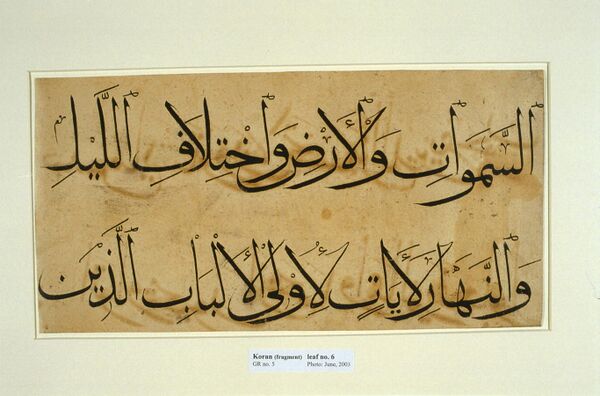 السَّمَواتِ وَالْأَرْضِ وَاخْتِلَافِ اللَّيْلِ
وَالنَّهَارِ لَآيَاتٍ لِأُولِي الْأَلْبَابِ الَّذِينَ
Koran (fragment) leaf no. 6
GR no. 5 Photo: June, 2003